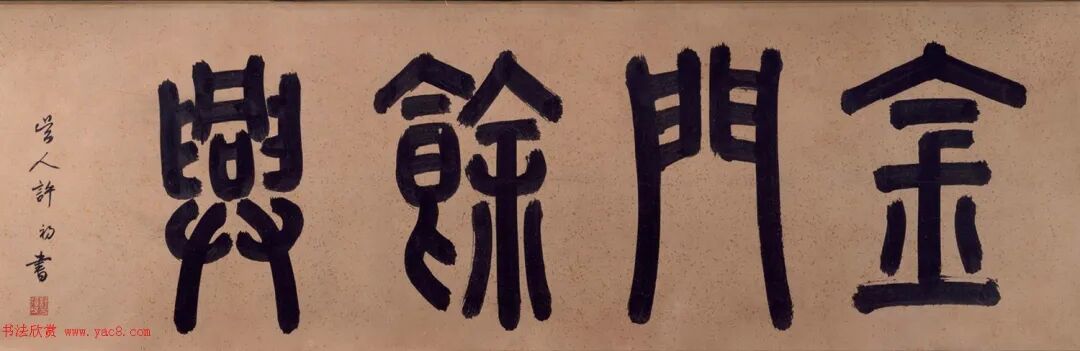 金門餘興
吳人許初書
书法欣赏 www.yac8.com